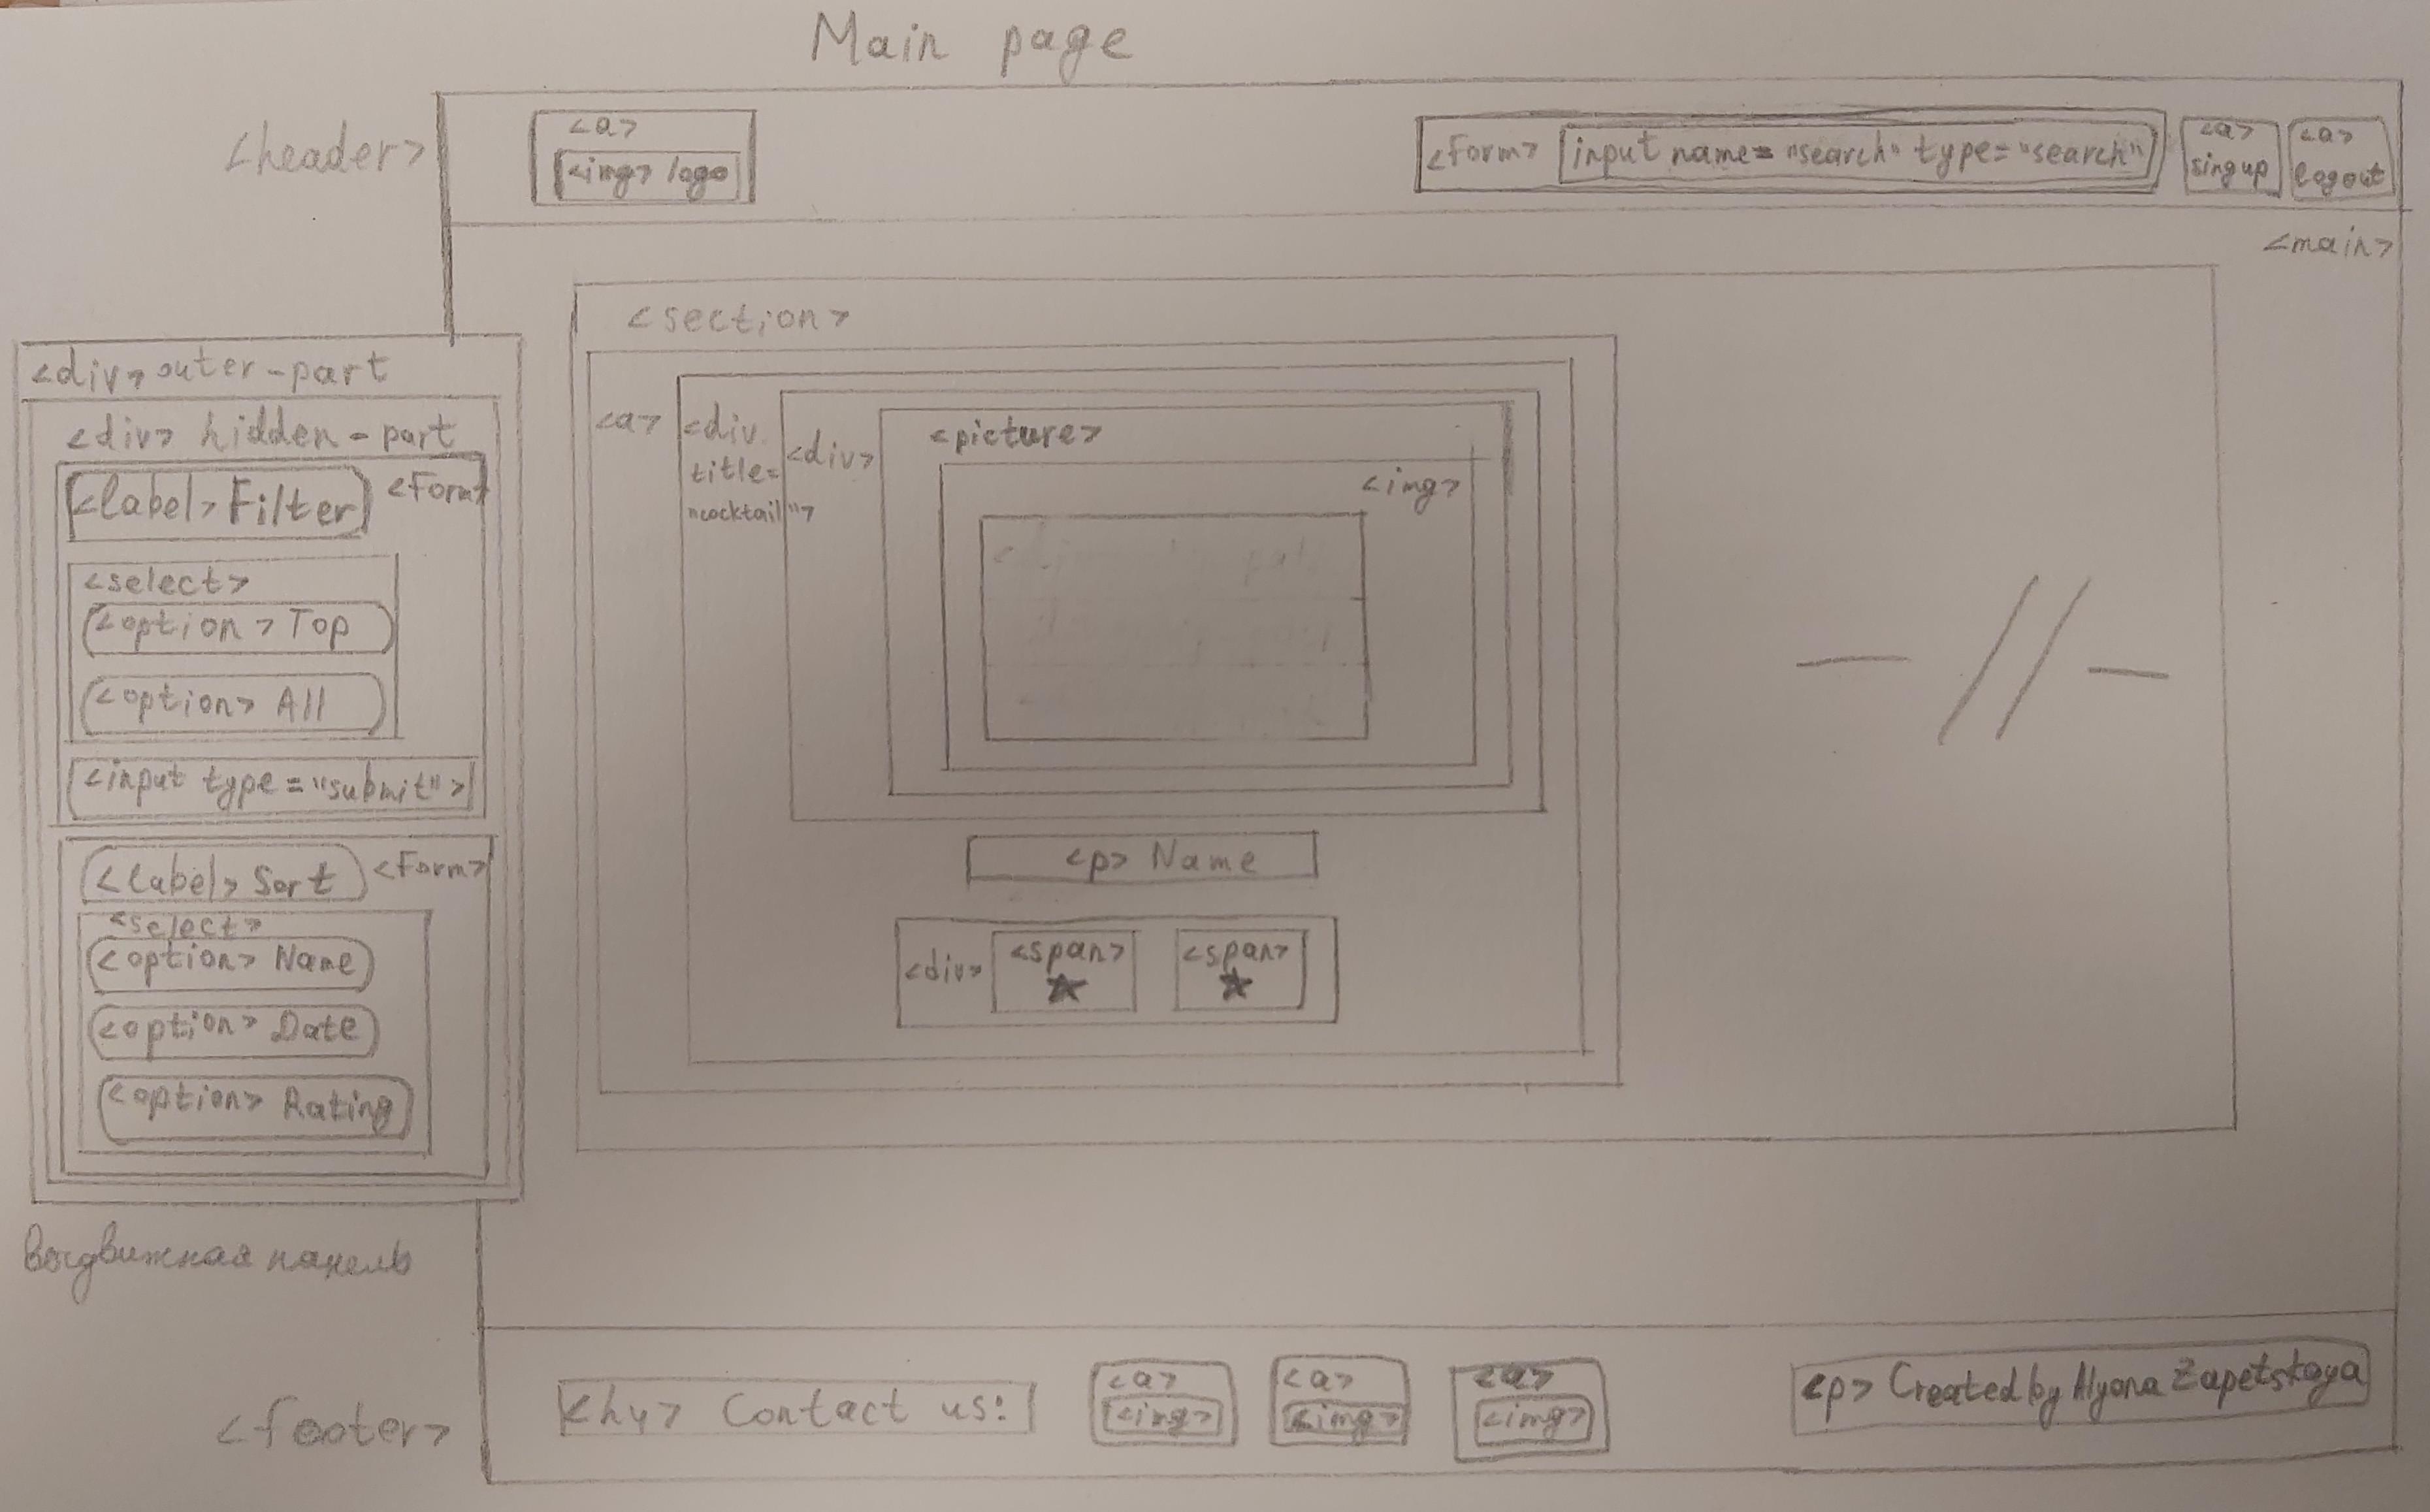 Main page
<header>
<a>
<img> logo
<form> input name="search" type="search"
<a>
singup
<a>
logout
<main>
<div> outer-part
<div> hidden-part
<label> Filter
<form>
<select>
<option> Top
<option> All
<input type="submit">
<label> Sort
<form>
<select>
<option> Name
<option> Date
<option> Rating
Выдвижная панель
<section>
<a>
<div
title=
"cocktail">
<div>
<picture>
<img>
<p> Name
<div>
<span>
★
<span>
★
— // —
<footer>
<h4> Contact us:
<a>
<img>
<a>
<img>
<a>
<img>
<p> Created by Alyona Zapetskaya